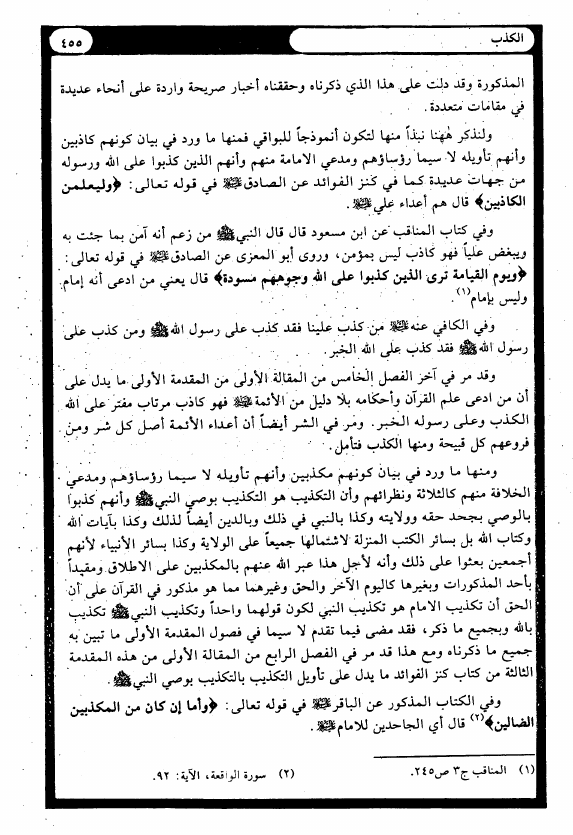 الكذب
٤٥٥
المذكورة وقد دلت على هذا الذي ذكرناه وحققناه أخبار صريحة واردة على أنحاء عديدة
في مقامات متعددة.
ولنذكر ههنا نبذاً منها لتكون أنموذجاً للبواقي فمنها ما ورد في بيان كونهم كاذبين
وأنهم تأويله لا سيما رؤساؤهم ومدعي الامامة منهم وأنهم الذين كذبوا على الله ورسوله
من جهات عديدة كما في كنز الفوائد عن الصادق ﷺ في قوله تعالى: ﴿وليعلمن
الكاذبين﴾ قال هم أعداء علي ﷺ.
وفي كتاب المناقب عن ابن مسعود قال قال النبي ﷺ من زعم أنه آمن بما جئت به
ويبغض علياً فهو كاذب ليس بمؤمن، وروى أبو المعزى عن الصادق ﷺ في قوله تعالى:
﴿ويوم القيامة ترى الذين كذبوا على الله وجوههم مسودة﴾ قال يعني من ادعى أنه إمام
وليس بإمام(١).
وفي الكافي عنه ﷺ من كذب علينا فقد كذب على رسول الله ﷺ ومن كذب على
رسول الله ﷺ فقد كذب على الله الخبر.
وقد مر في آخر الفصل الخامس من المقالة الأولى من المقدمة الأولى ما يدل على
أن من ادعى علم القرآن وأحكامه بلا دليل من الأئمة ﷺ فهو كاذب مرتاب مفتر على الله
الكذب وعلى رسوله الخبر. ومر في الشر أيضاً أن أعداء الأئمة أصل كل شر ومن
فروعهم كل قبيحة ومنها الكذب فتأمل.
ومنها ما ورد في بيان كونهم مكذبين وأنهم تأويله لا سيما رؤساؤهم ومدعي
الخلافة منهم كالثلاثة ونظرائهم وأن التكذيب هو التكذيب بوصي النبي ﷺ وأنهم كذبوا
بالوصي بجحد حقه وولايته وكذا بالنبي في ذلك وبالدين أيضاً لذلك وكذا بآيات الله
وكتاب الله بل بسائر الكتب المنزلة لاشتمالها جميعاً على الولاية وكذا بسائر الأنبياء لأنهم
أجمعين بعثوا على ذلك وأنه لأجل هذا عبر الله عنهم بالمكذبين على الاطلاق ومقيداً
بأحد المذكورات وبغيرها كاليوم الآخر والحق وغيرهما مما هو مذكور في القرآن على أن
الحق أن تكذيب الامام هو تكذيب النبي لكون قولهما واحداً وتكذيب النبي ﷺ تكذيب
بالله وبجميع ما ذكر، فقد مضى فيما تقدم لا سيما في فصول المقدمة الأولى ما تبين به
جميع ما ذكرناه ومع هذا قد مر في الفصل الرابع من المقالة الأولى من هذه المقدمة
الثالثة من كتاب كنز الفوائد ما يدل على تأويل التكذيب بالتكذيب بوصي النبي ﷺ.
وفي الكتاب المذكور عن الباقر ﷺ في قوله تعالى: ﴿وأما إن كان من المكذبين
الضالين﴾(٢) قال أي الجاحدين للامام ﷺ.
(١) المناقب ج٣ ص٢٤٥.
(٢) سورة الواقعة، الآية: ٩٢.